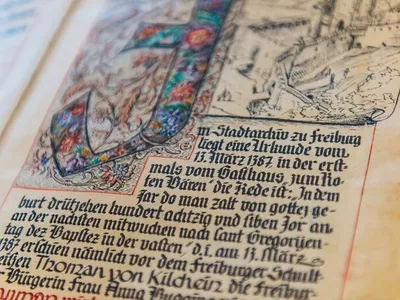 m Stadtarchiv zu Freiburg
liegt eine Urkunde vom
13. März 1387 in der erst-
mals vom Gasthaus „zum Ro-
ten Bären“ die Rede ist: „In dem
Jar do man zalt von gottez ge-
burt drützehen hundert achtzig und siben Jor an
an der nachsten mitwuchen nach sant Gregorijen-
tag dez Bapstez in der vasten“ d.i. am 13. März
1387 erschien nämlich vor dem Freiburger Schult-
heißen Thoman von Kilchein die Freibur-
r Bürgerin Frau Anna